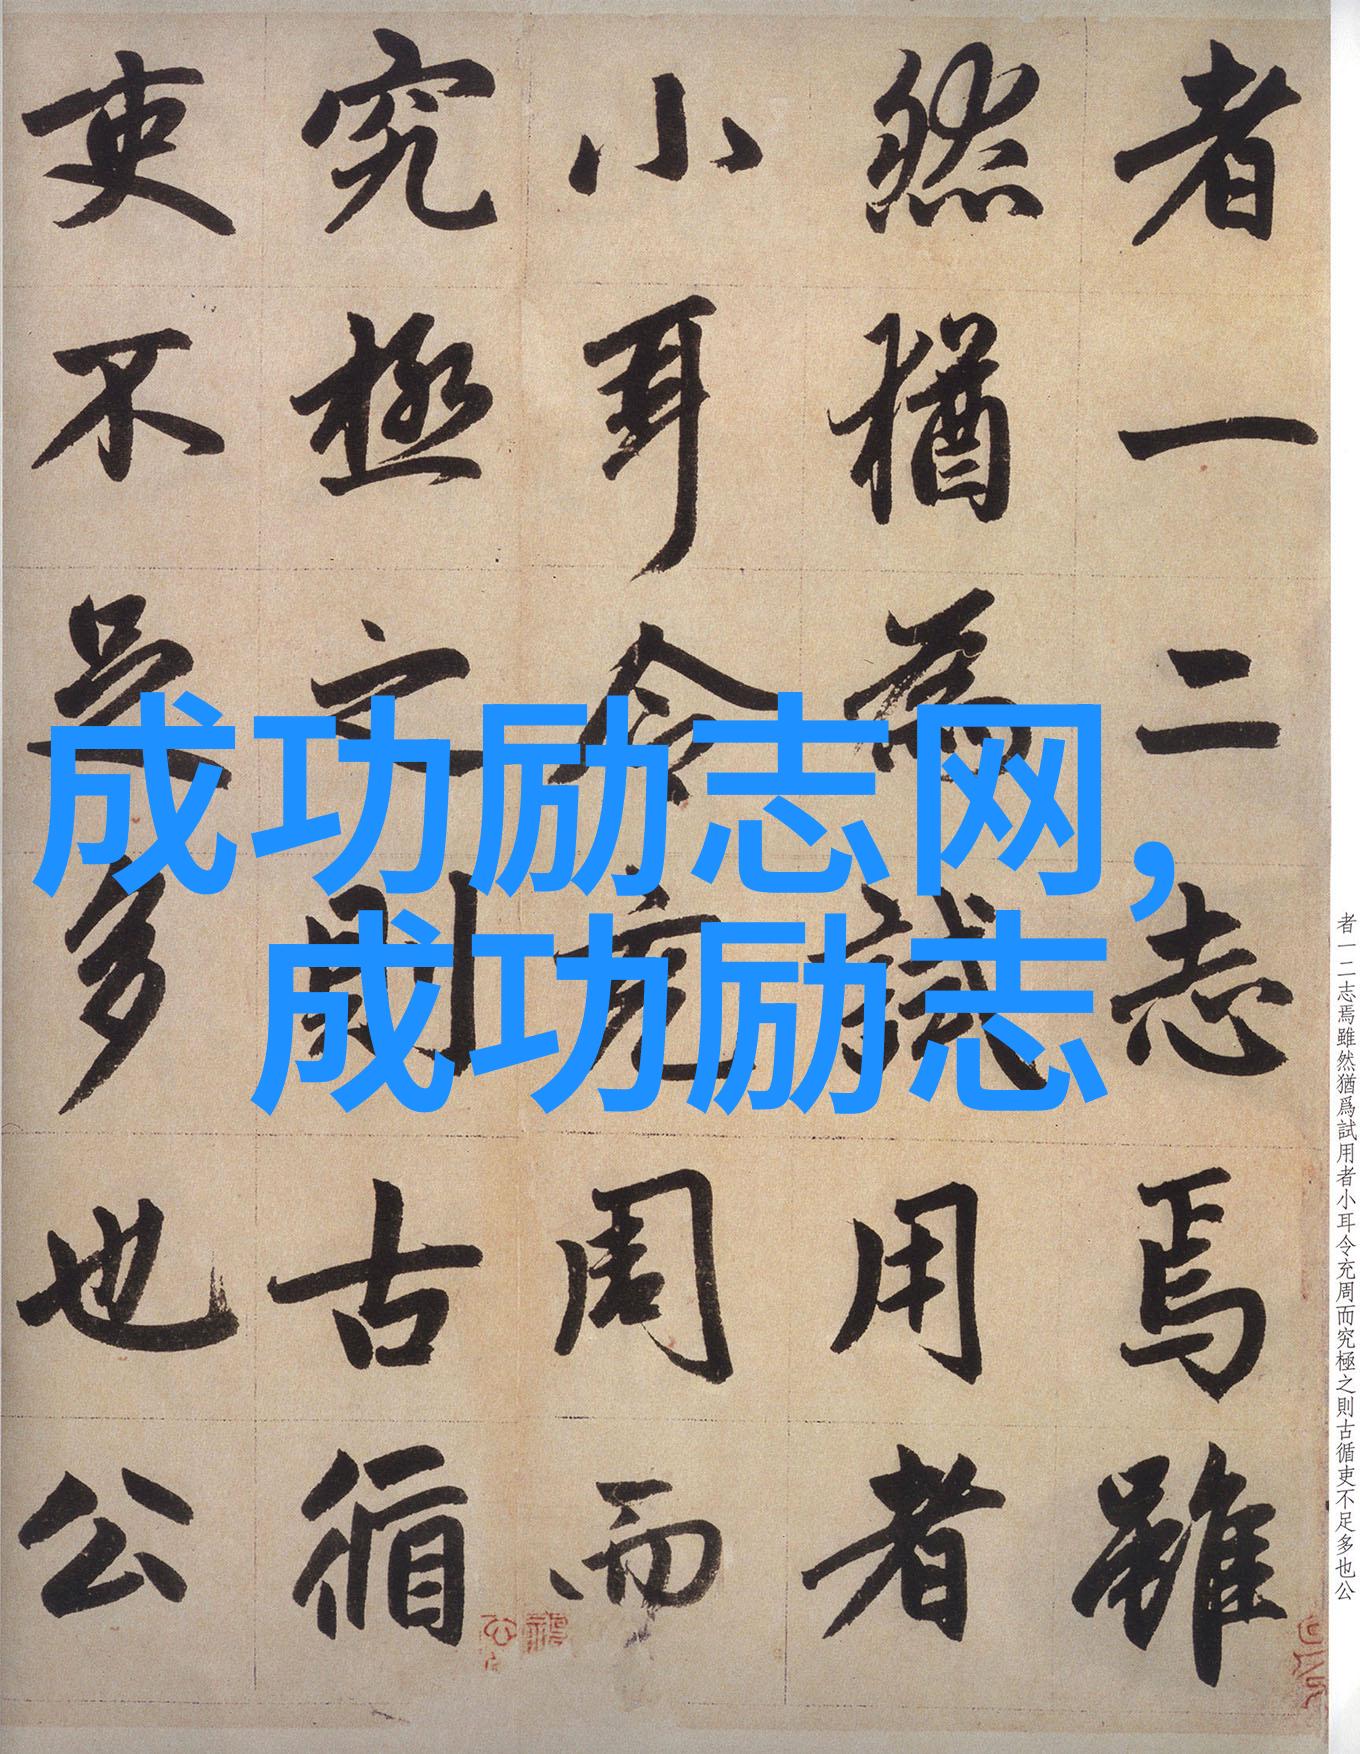 者一二志焉雖
然猶為試用者
小耳令充周而
究極之則古循
吏不足多也公
成功励志网，
成功励志
者一二志焉雖然猶爲試用者小耳令充周而究極之則古循吏不足多也公